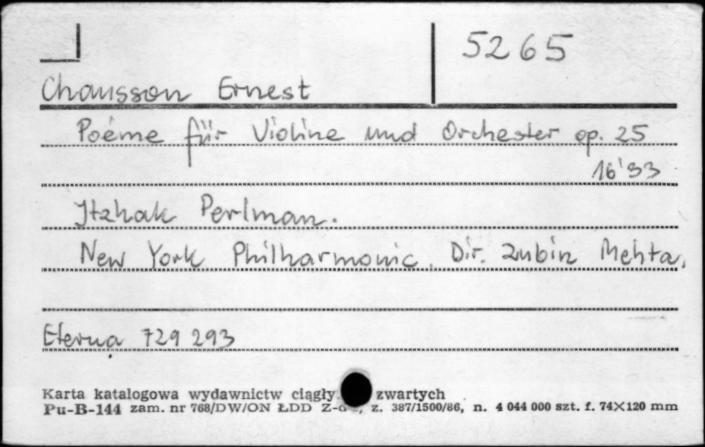 5265
Chausson Ernest
Poéme für Violine und Orchester op. 25
16'93
Itzhak Perlman.
New York Philharmonic. Dir. Zubin Mehta.
Eterna 729 293
Karta katalogowa wydawnictw ciągły zwartych
Pu-B-144 zam. nr 768/DW/ON ŁDD z. 387/1500/86, n. 4 044 000 szt. f. 74×120 mm